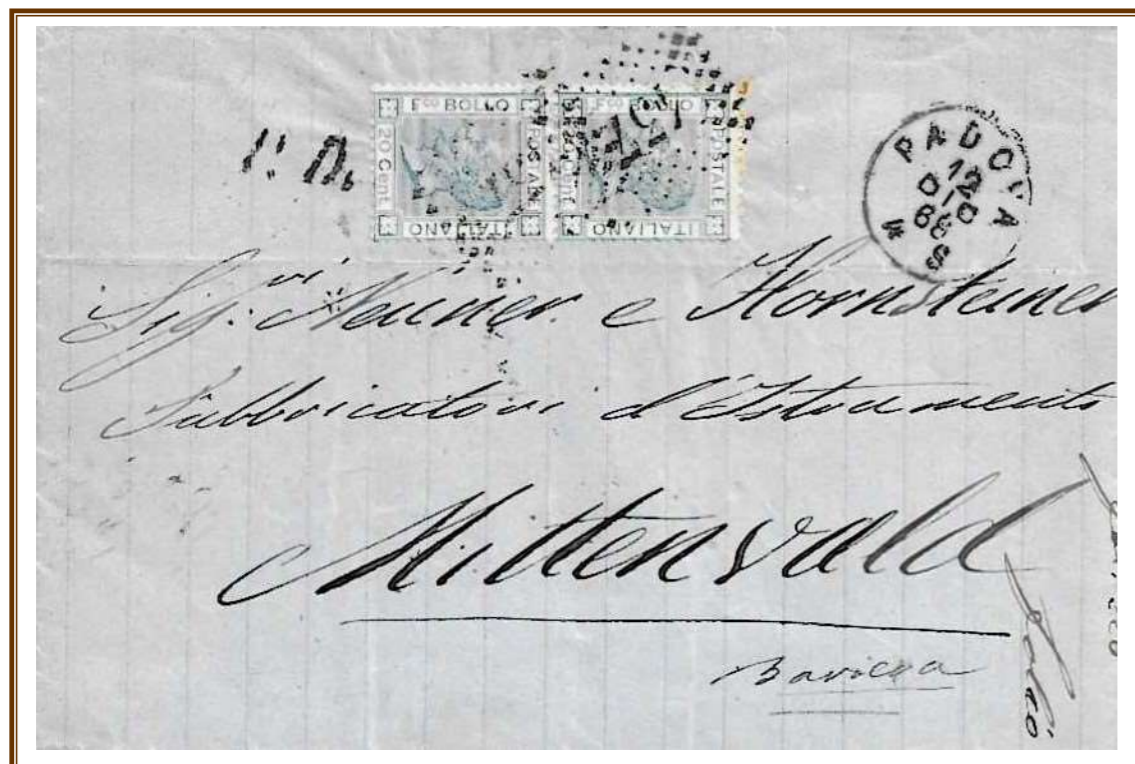 Fco BOLLO POSTALE ITALIANO 20 Cent
Fco BOLLO POSTALE ITALIANO
P. D.
PADOVA
12
DIC
68
5 S
Sigri Neuner e Hornsteiner
Fabbricatori d'Istrumenti
Mittenvald
Baviera